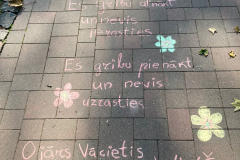 Es gribu atnākt
un nevis
uzrasties
Es gribu pienākt
un nevis
uzrasties
Ojārs Vācietis